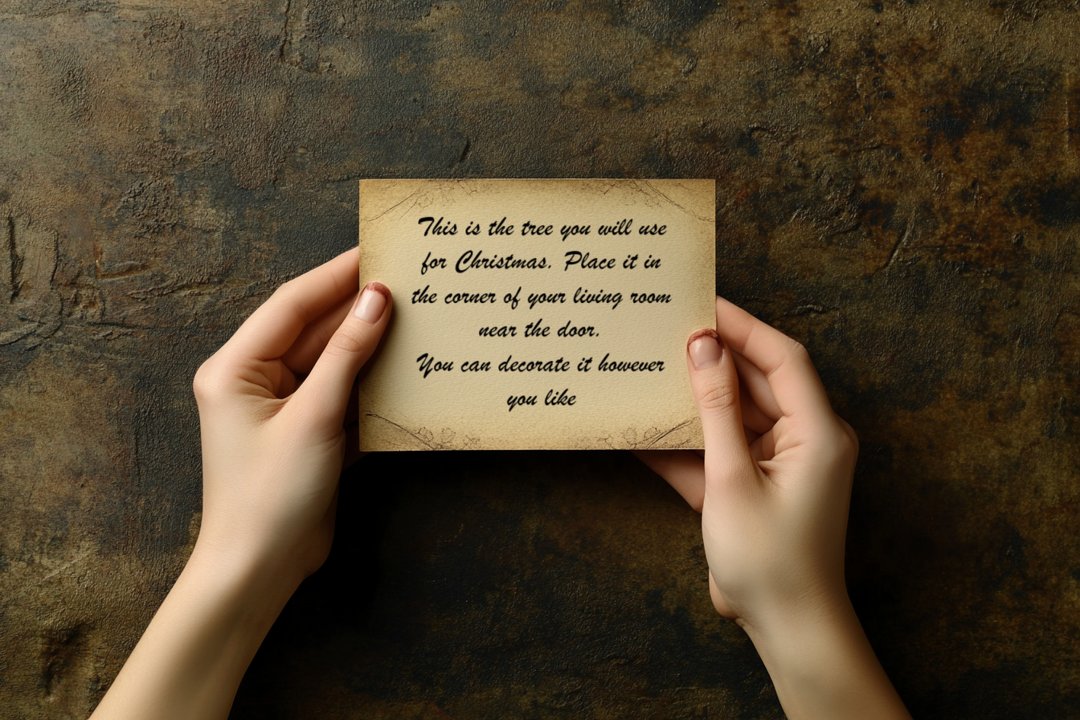 This is the tree you will use
for Christmas. Place it in
the corner of your living room
near the door.
You can decorate it however
you like